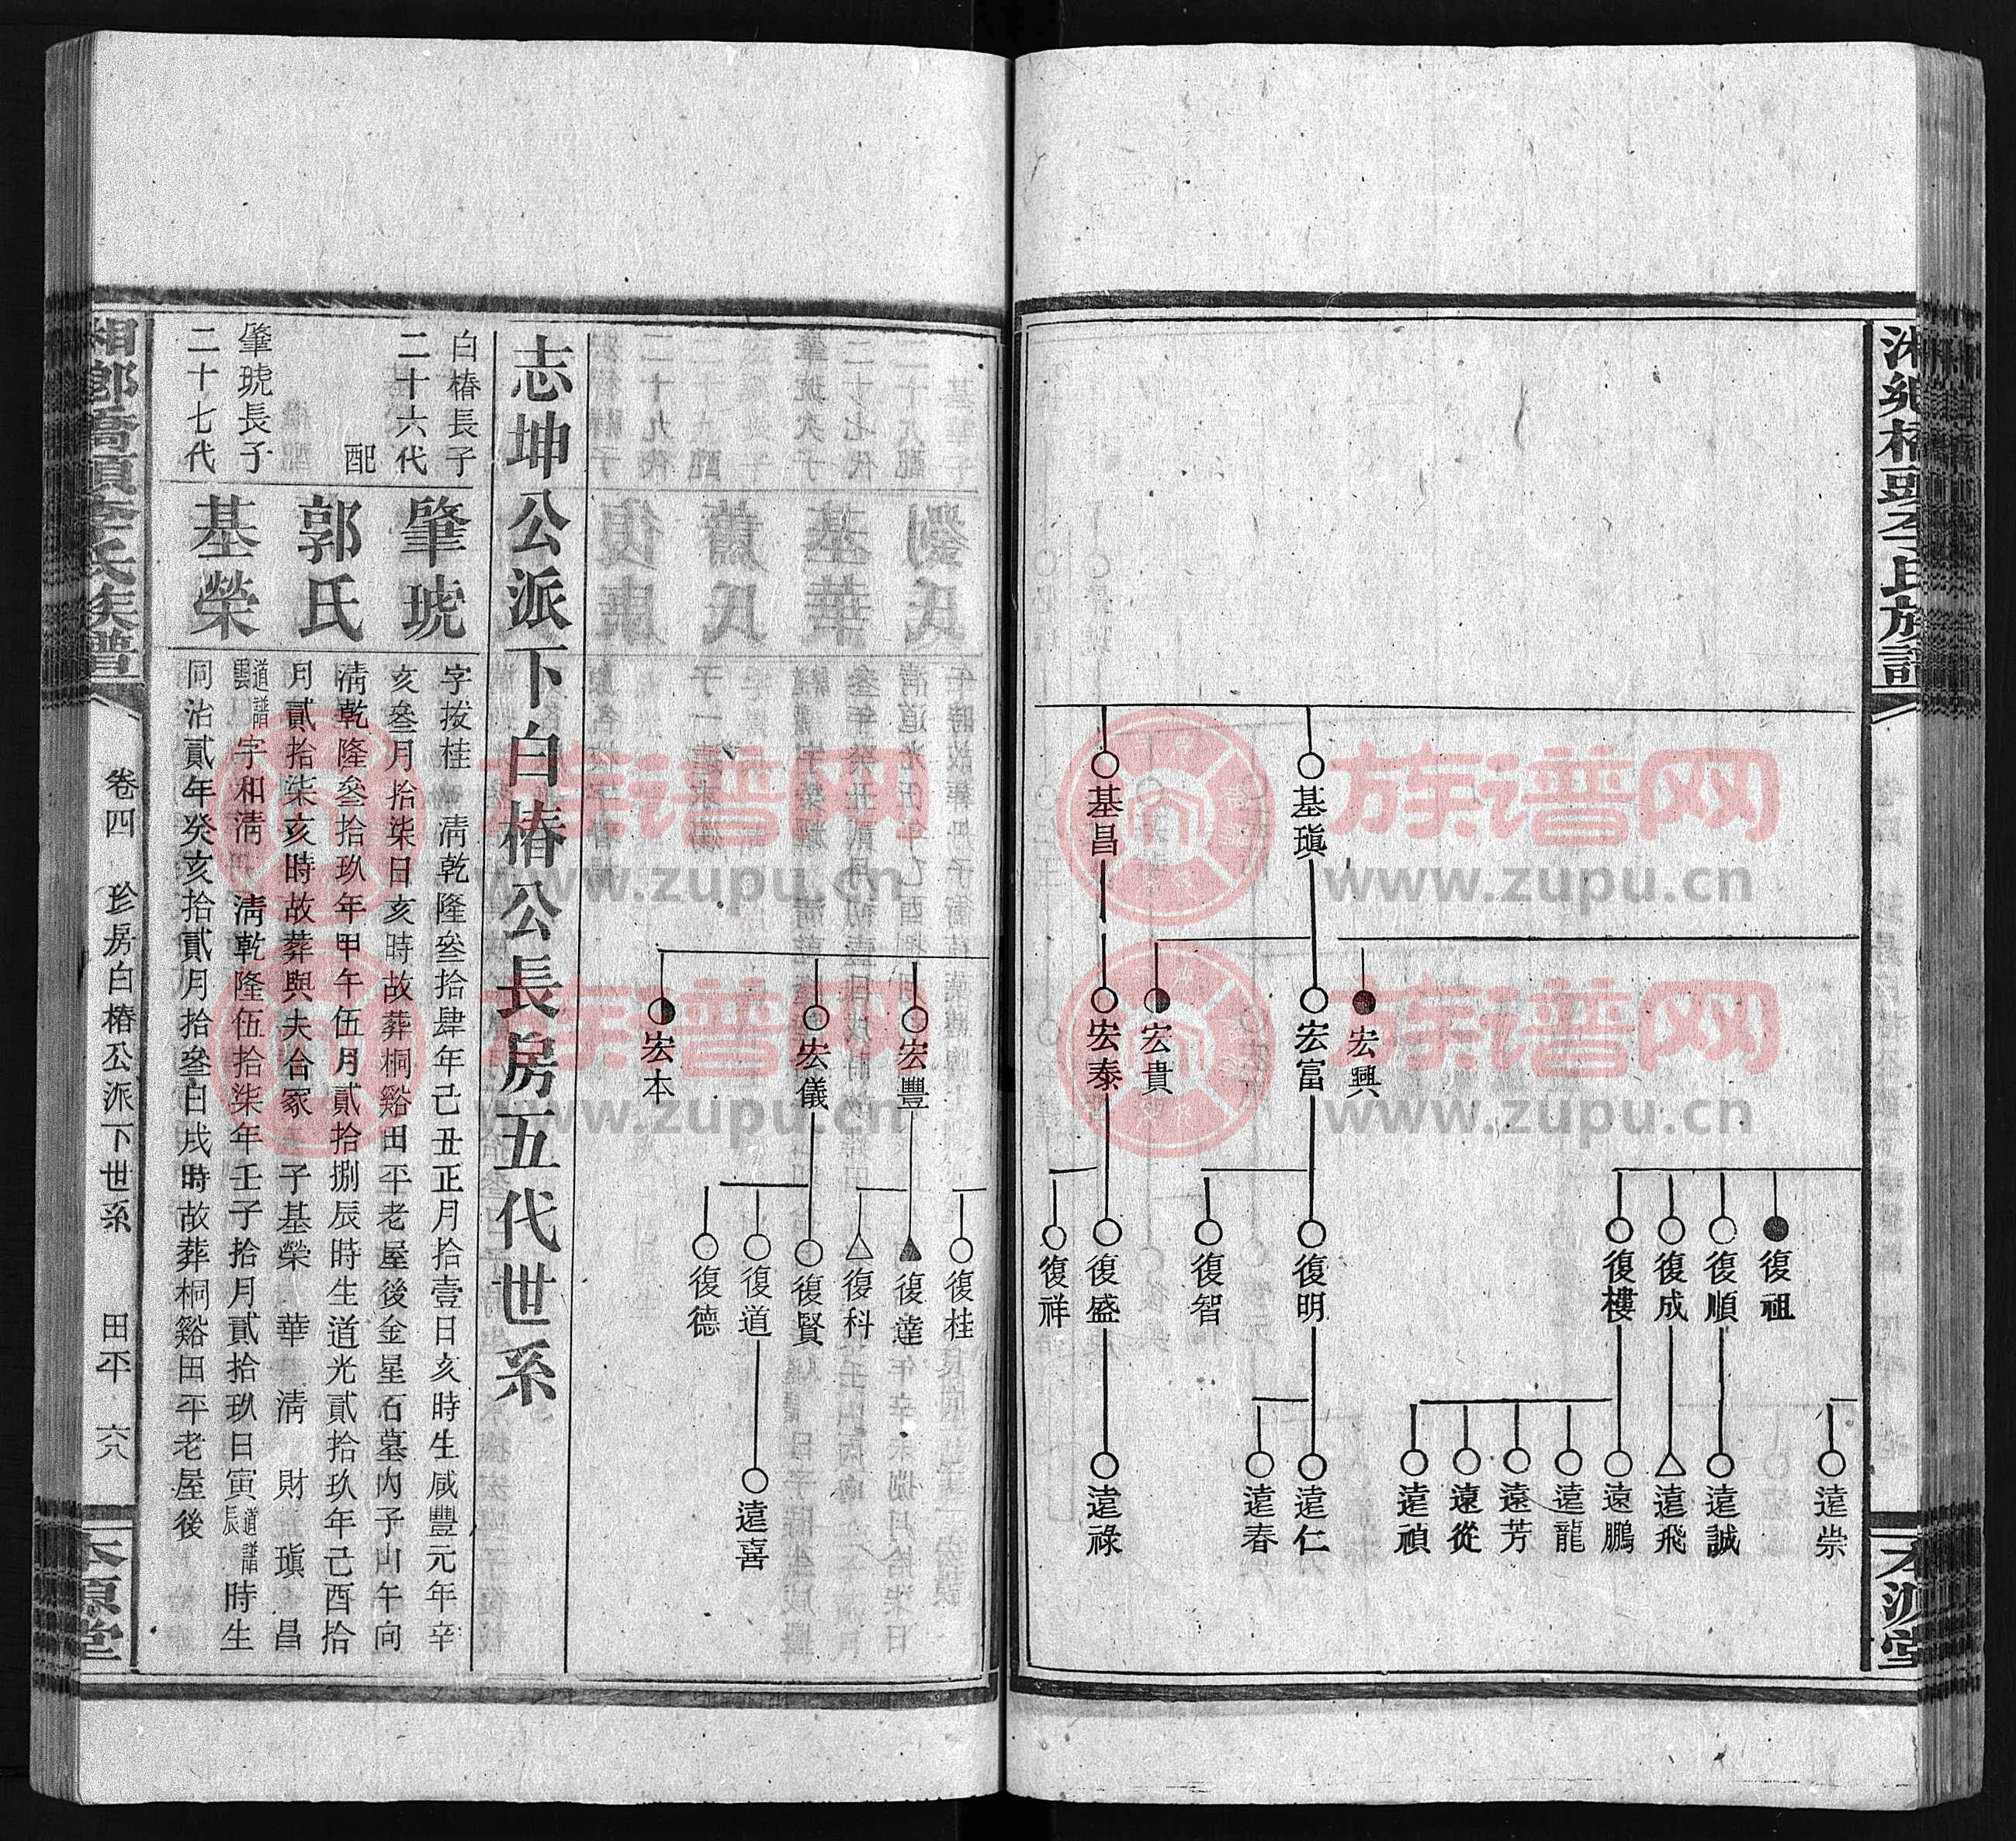 氏族譜
基瑱
基昌
宏興
宏富
宏貴
宏泰
復祖
復順
復成
復樓
復明
復智
復盛
復祥
遠崇
遠誠
遠飛
遠鵬
遠龍
遠芳
遠從
遠禎
遠仁
遠春
遠祿
宏豐
宏儀
宏本
復桂
復達
復科
復賢
復道
復德
遠喜
志坤公派下白椿公長房五代世系
白椿長子
二十六代
肇琥
字拔桂 淸乾隆叄拾肆年己丑正月拾壹日亥時生咸豐元年辛
亥叄月拾柒日亥時故葬桐谿田平老屋後金星石墓內子山午向
配
郭氏
淸乾隆叄拾玖年甲午伍月貳拾捌辰時生道光貳拾玖年己酉拾
月貳拾柒亥時故葬與夫合冢 子基榮 華 淸 財 瑱 昌
肇琥長子
二十七代
基榮
道譜雲字和淸 淸乾隆伍拾柒年壬子拾月貳拾玖日寅道譜辰時生
同治貳年癸亥拾貳月拾叄日戌時故葬桐谿田平老屋後
湘鄉橋頭李氏族譜
卷四 珍房白椿公派下世系 田平 六八
本源堂
族谱网
www.zupu.cn
族谱网
www.zupu.cn
族谱网
www.zupu.cn
族谱网
www.zupu.cn